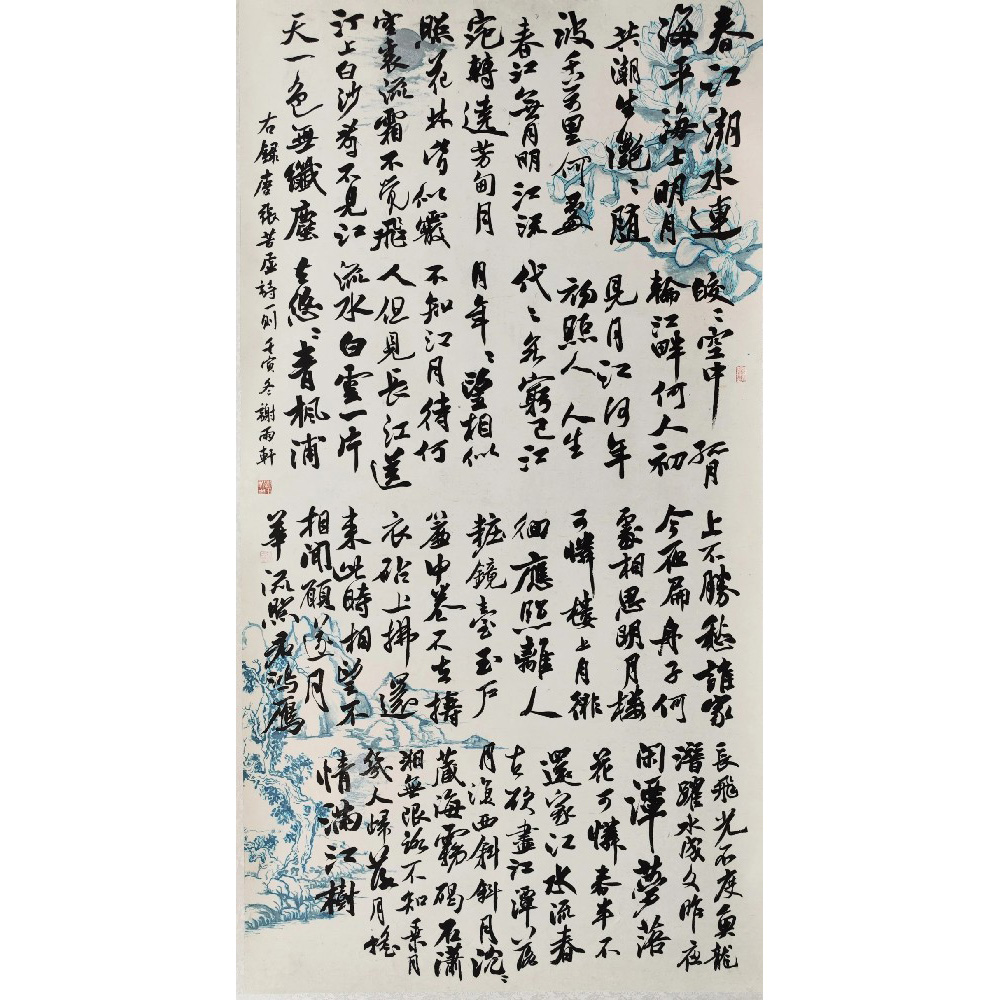 春江潮水連
海平海上明月
共潮生灔〻隨
波千万里何處
春江無月明江流
宛轉遶芳甸月
照花林皆似霰
空裏流霜不覺飛
汀上白沙看不見江
天一色無纖塵
皎〻空中孤月
輪江畔何人初
見月江何年
初照人人生
代〻無窮已江
月年〻望相似
不知江月待何
人但見長江送
流水白雲一片
去悠〻青楓浦
上不勝愁誰家
今夜扁舟子何
處相思明月樓
可憐樓上月徘
徊應照離人
粧鏡臺玉戶
簾中卷不去擣
衣砧上拂還
來此時相望不
相聞願逐月
華流照君鴻鴈
長飛光不度魚龍
潛躍水成文昨夜
閑潭夢落
花可憐春半不
還家江水流春
去欲盡江潭落
月復西斜斜月沈〻
藏海霧碣石瀟
湘無限路不知乘月
幾人歸落月搖
情滿江樹
右錄唐張若虛詩一則壬寅冬謝雨軒